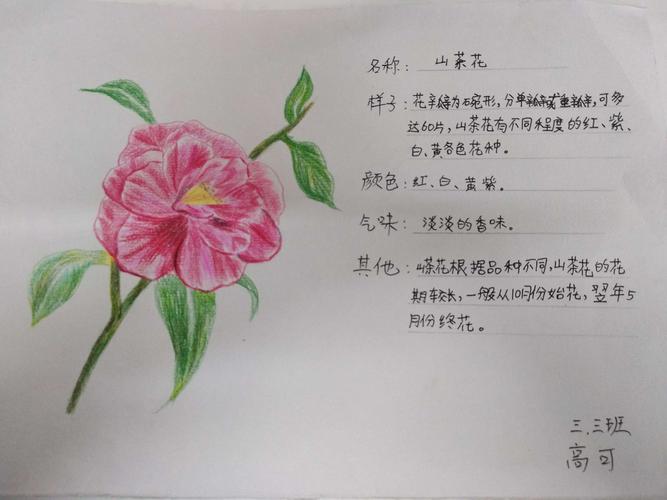 名称： 山茶花
样子：花瓣为碗形，分单瓣或重瓣，可多
达60片，山茶花有不同程度的红、紫、
白、黄各色花种。
颜色：红、白、黄紫。
气味：淡淡的香味。
其他：山茶花根据品种不同，山茶花的花
期较长，一般从10月份始花，翌年5
月份终花。
三.三班
高可